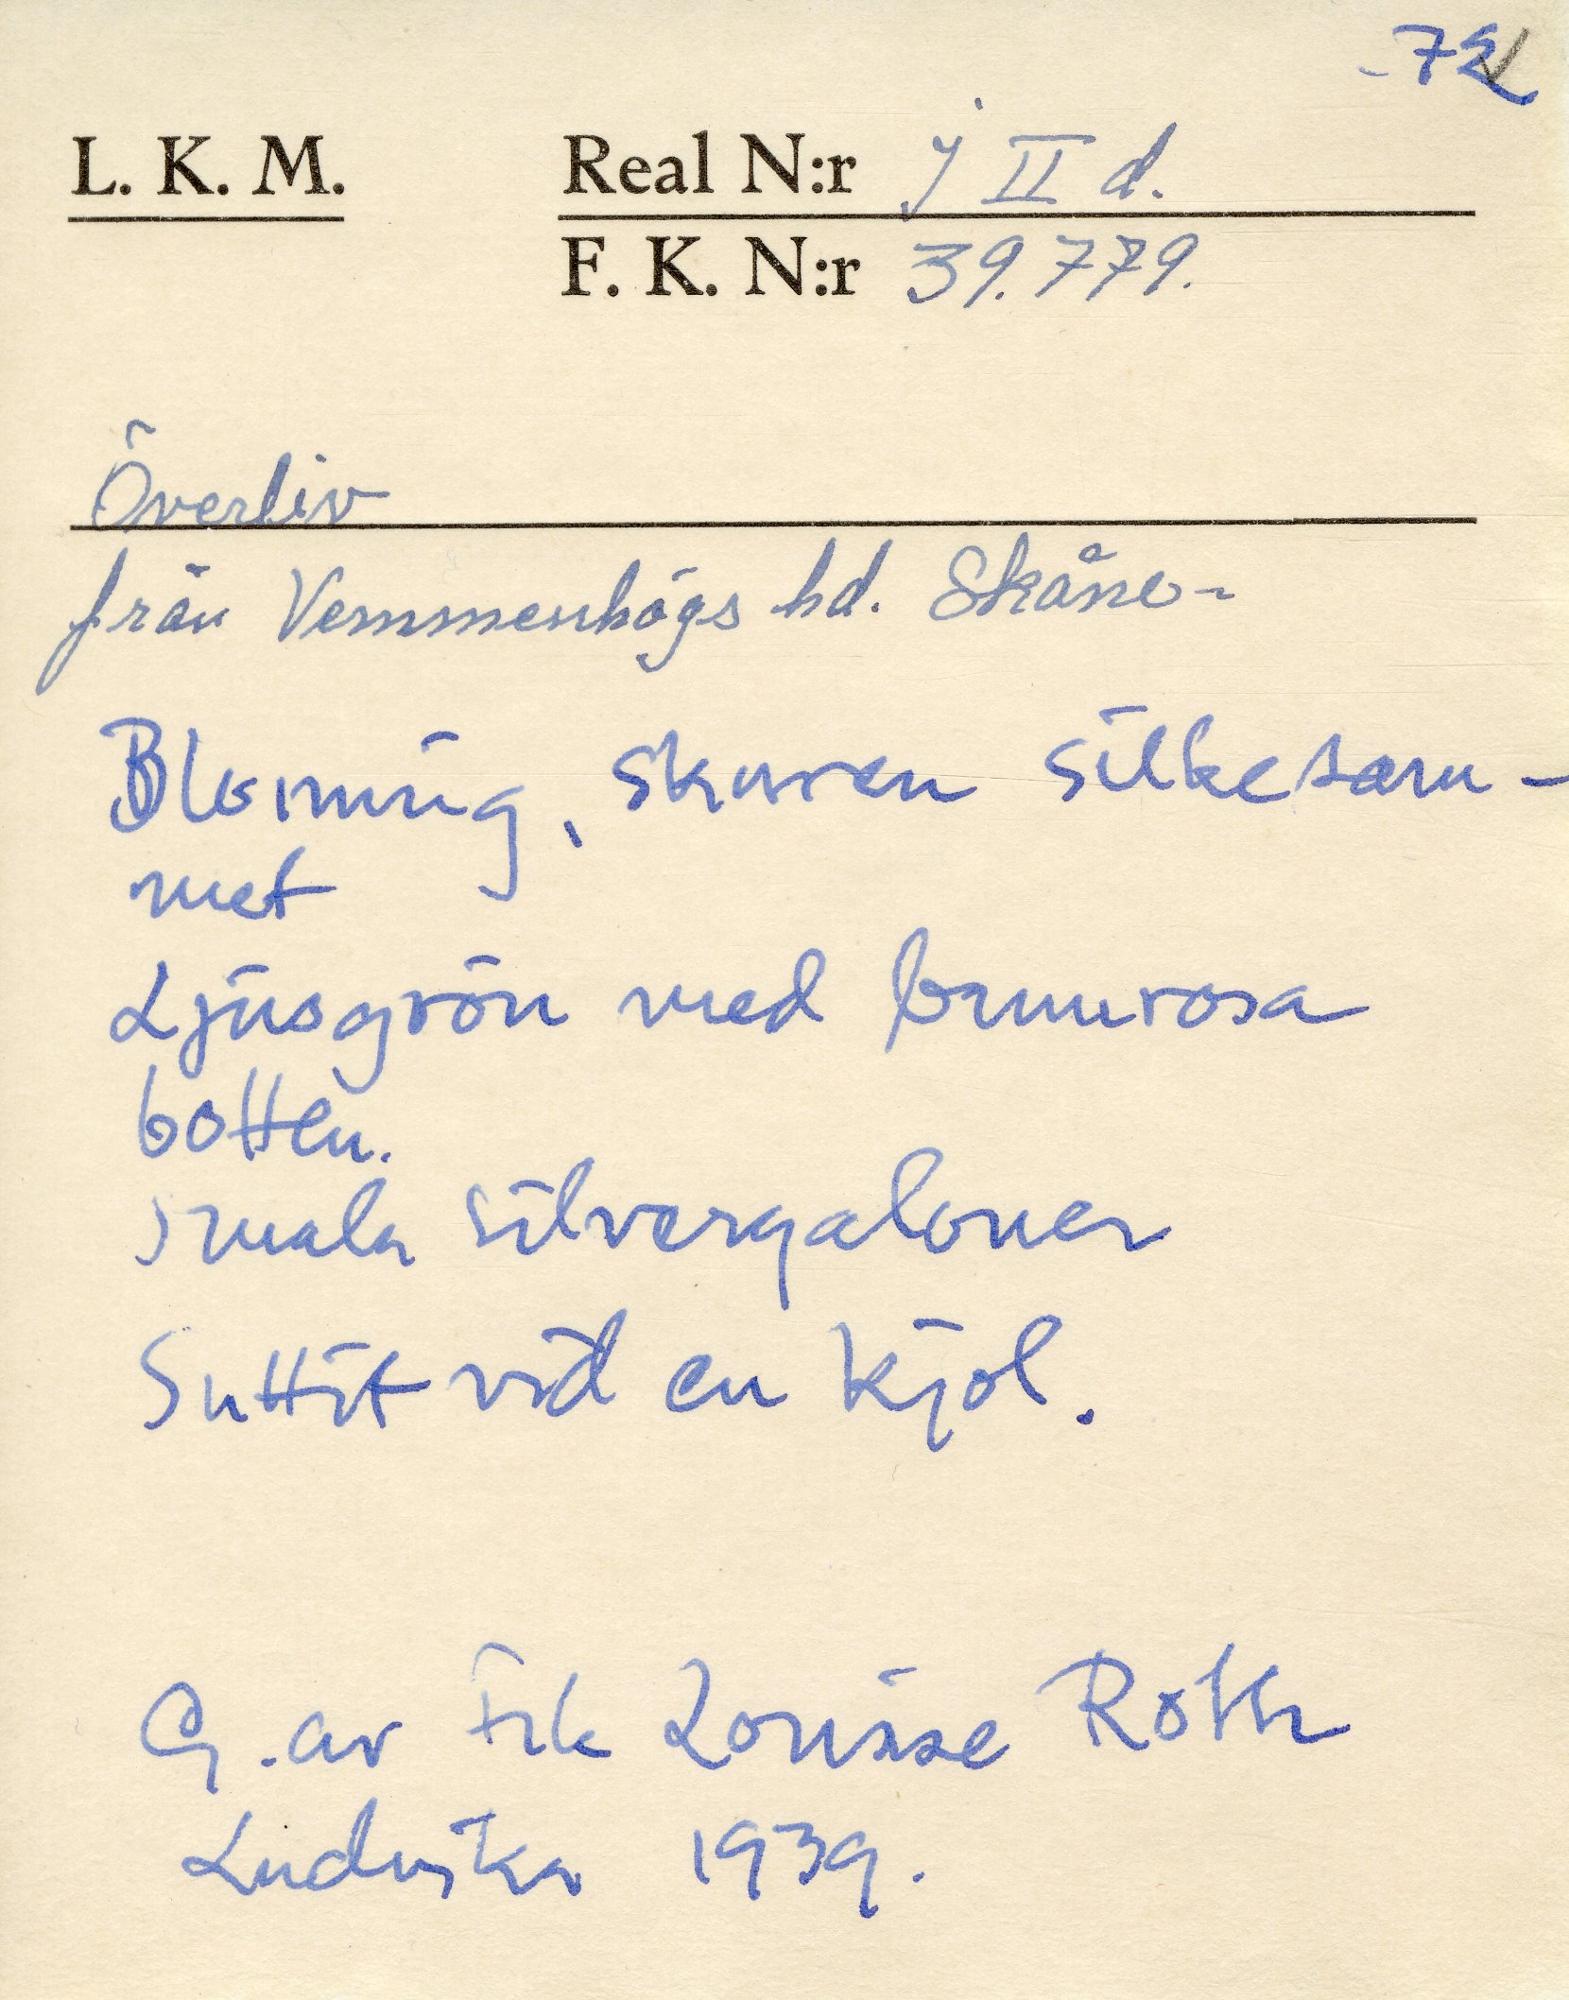 -72
L. K. M. Real N:r j II d.
F. K. N:r 39.779.
Överliv
från Vemmenhögs hd. Skåne-
Blommig, skuren silkesam-
met
Ljusgrön med brunrosa
botten.
Smala silvergaloner
Suttit vid en kjol.
G. av Frk Louise Roth
Ludvika 1939.